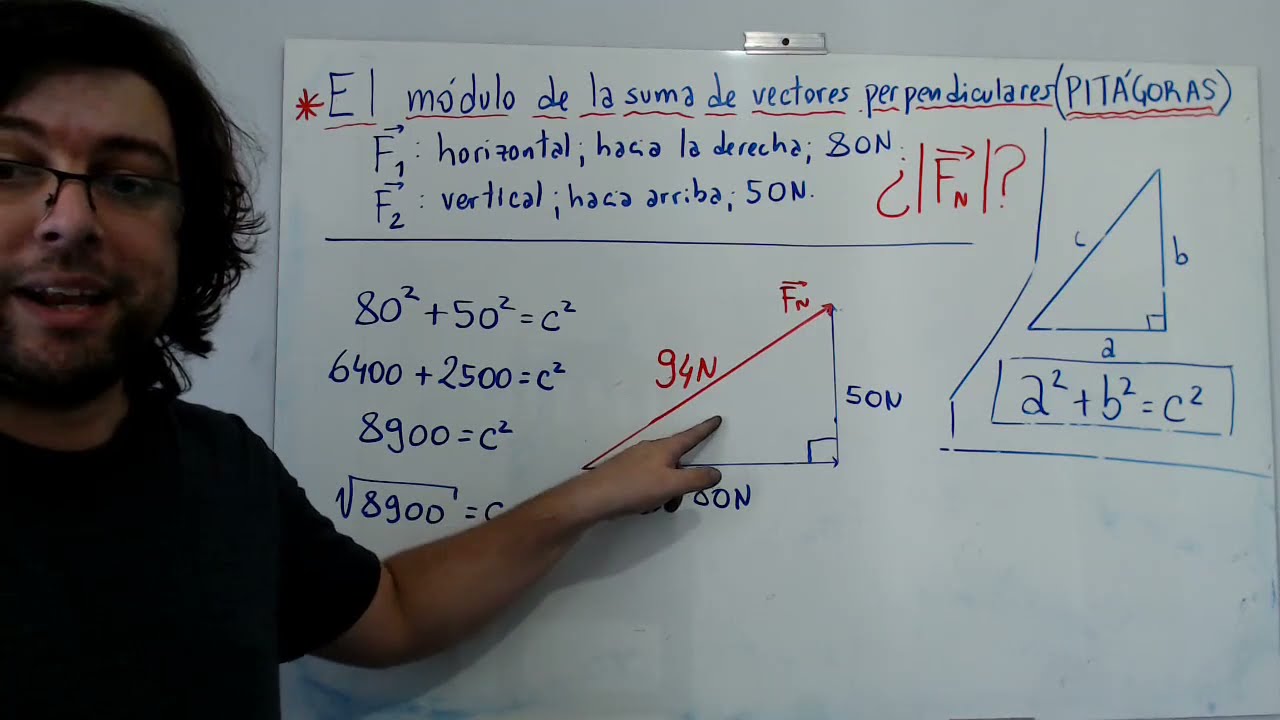 *El módulo de la suma de vectores perpendiculares (PITÁGORAS)
F₁: horizontal; hacia la derecha; 80N.
F₂: vertical; hacia arriba; 50N.
¿|F_N|?
80² + 50² = c²
6400 + 2500 = c²
8900 = c²
√8900 = c
F_N
94N
50N
80N
c
b
a
a² + b² = c²